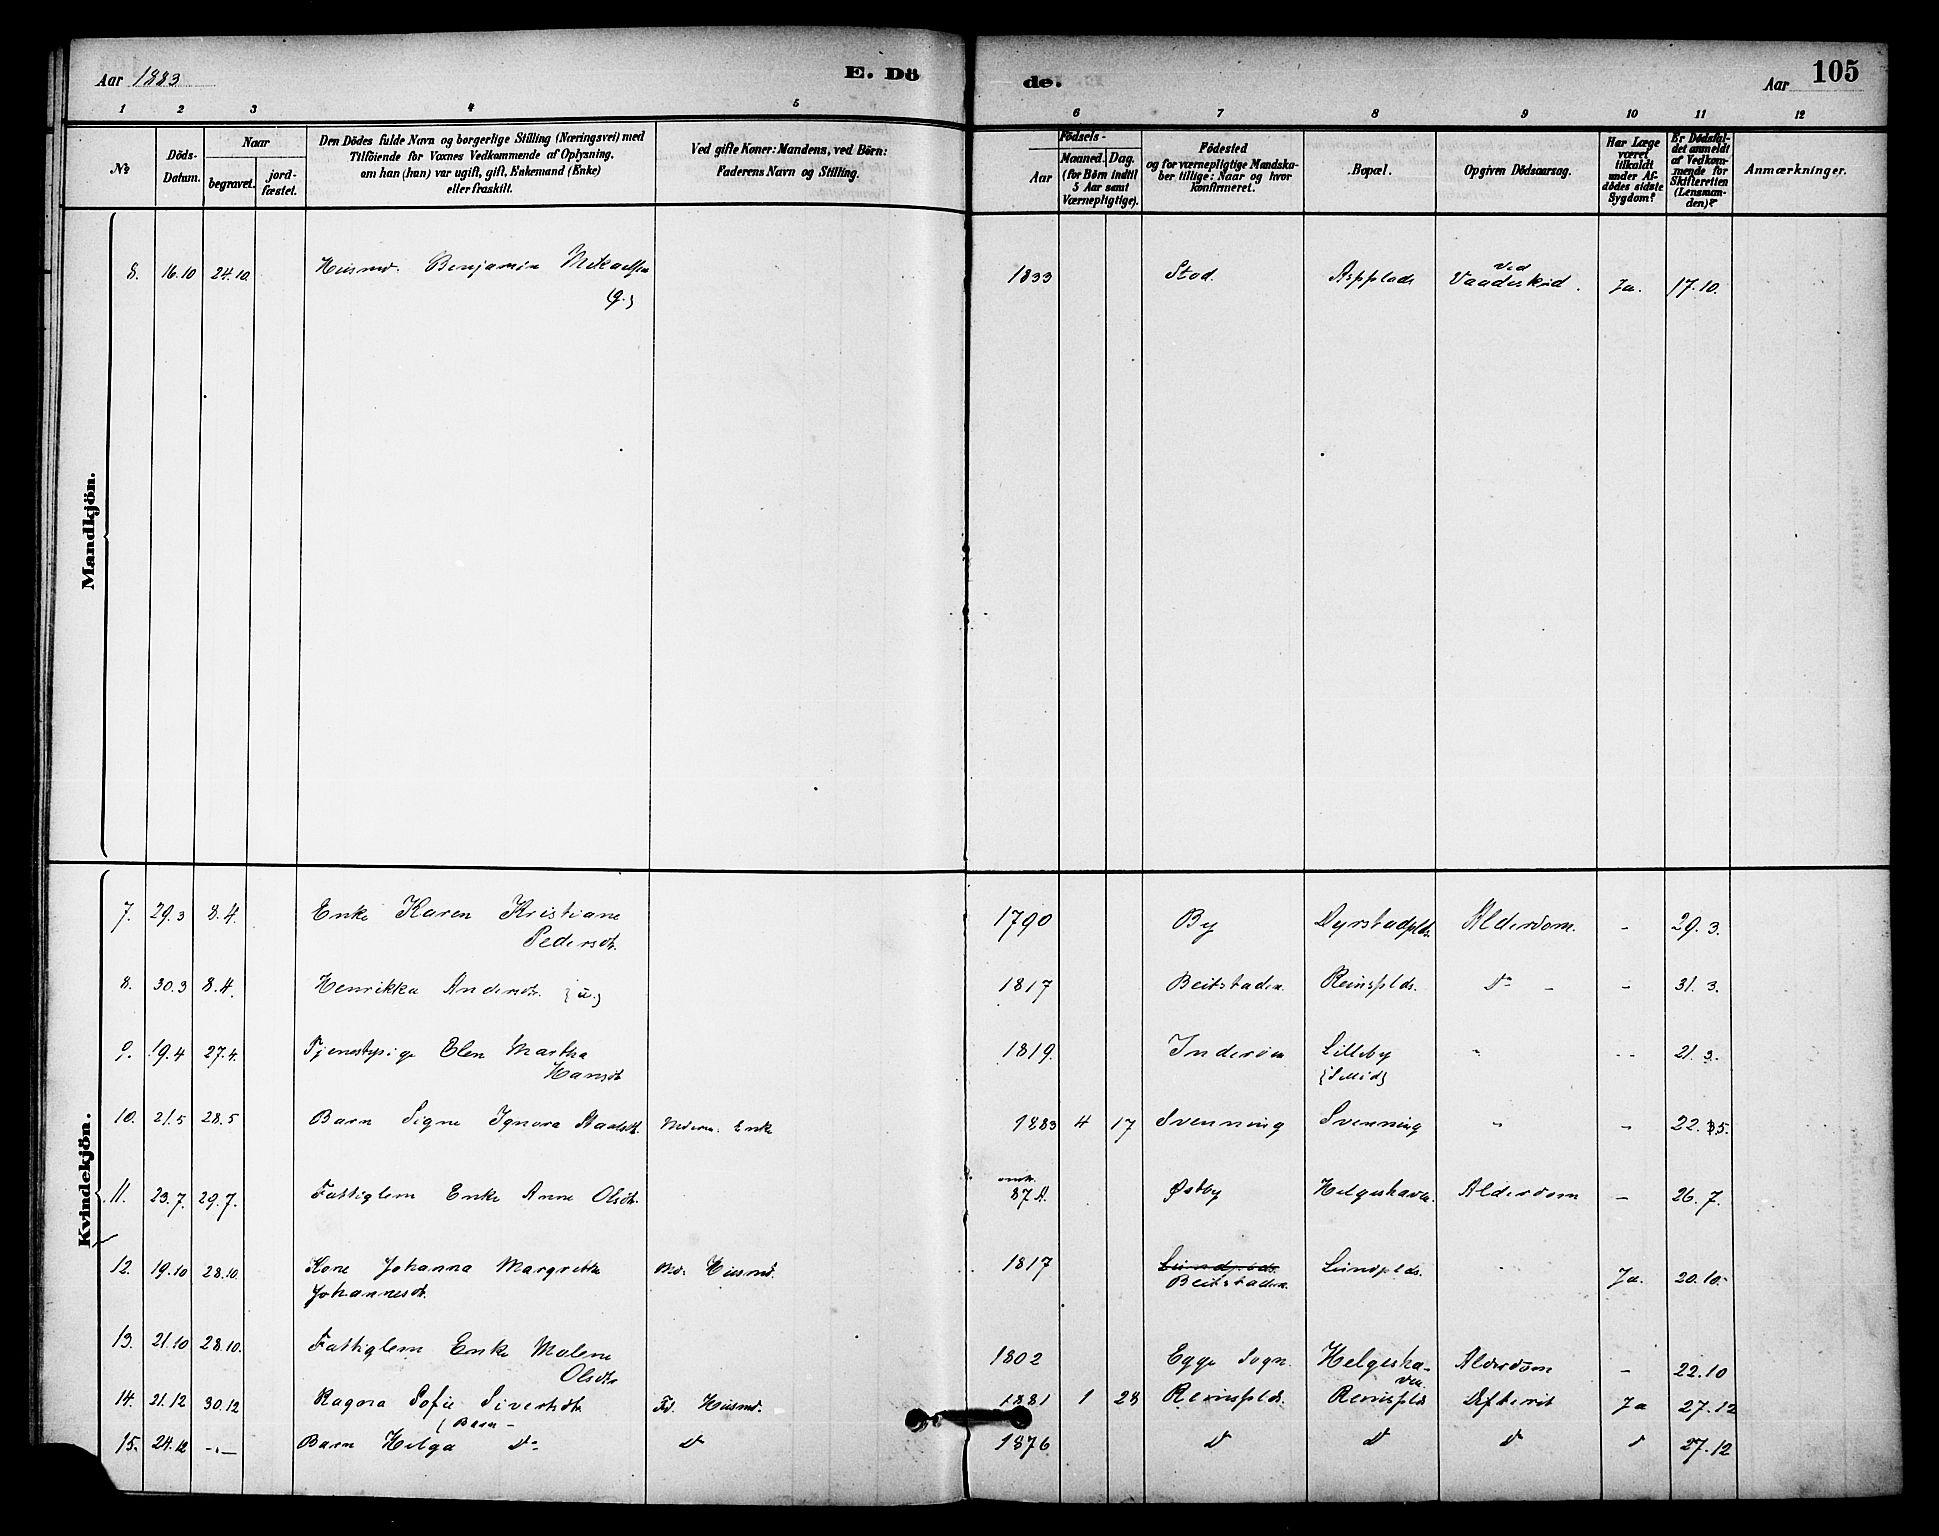 Aar 1883
E. Dö
de.
Aar
105
1 2 3 4 5 6 7 8 9 10 11 12
№
Döds-
Datum.
Naar
begravet.
jord-
fæstet.
Den Dödes fulde Navn og borgerlige Stilling (Næringsvei) med
Tilföiende for Voxnes Vedkommende af Oplysning,
om han (hun) var ugift, gift, Enkemand (Enke)
eller fraskilt.
Ved gifte Koner: Mandens, ved Börn:
Faderens Navn og Stilling.
Födsels-
Aar
Maaned. Dag.
(for Börn indtil
5 Aar samt
Værnepligtige).
Födested
og for værnepligtige Mandska-
ber tillige: Naar og hvor
konfirmeret.
Bopæl.
Opgiven Dödsaarsag.
Har Læge
været
tilkaldt
under Af-
dödes sidste
Sygdom?
Er Dödsfal-
det anmeldt
af Vedkom-
mende for
Skifteretten
(Lensman-
den)?
Anmærkninger.
Mandkjön.
8. 16.10 24.10. Husmd. Benjamin Mikaelsen 1833 Stod. Aspplads ved Vaadeskud. Ja. 17.10.
(g.)
Kvindekjön.
7. 29.3 8.4. Enke Karen Kristiane 1790 By Dyrstadplds. Alderdom. - 29.3.
Pedersdt.
8. 30.3 8.4. Henrikka Andersdt. (u.) 1817 Beitstaden. Reinsplds. Do - - 31.3.
9. 19.4 27.4. Tjenestepige Elen Martha 1819. Inderöen Lilleby 21.3.
Hansdt
10. 21.5 28.5 Barn Signe Ignora Enke 1883 4 17 Svenning Svenning 22.5.
11. 23.7. 29.7. Fattiglem Enke Anne Olsdt. omtr. 87 A. Østby Helgeshaven. Alderdom - 26.7.
12. 19.10 28.10. Kone Johanna Margrethe Md. Husmd. 1817 Lundplds. Lundplds. Ja. 20.10.
Johannesdt. Beitstaden.
13. 21.10 28.10. Fattiglem Enke Malene 1802 Egge Sogn. Helgesha- Alderdom - 22.10
Olsdt. ven.
14. 21.12 30.12 Ragna Sofie Sivertsdt. Fd. Husmd. 1881 1 28 Reinsplds. Reinsplds Difterit Ja 27.12
(Barn-
15. 24.12 -"- Barn Helga Do Do 1876 Do Do Do Do 27.12